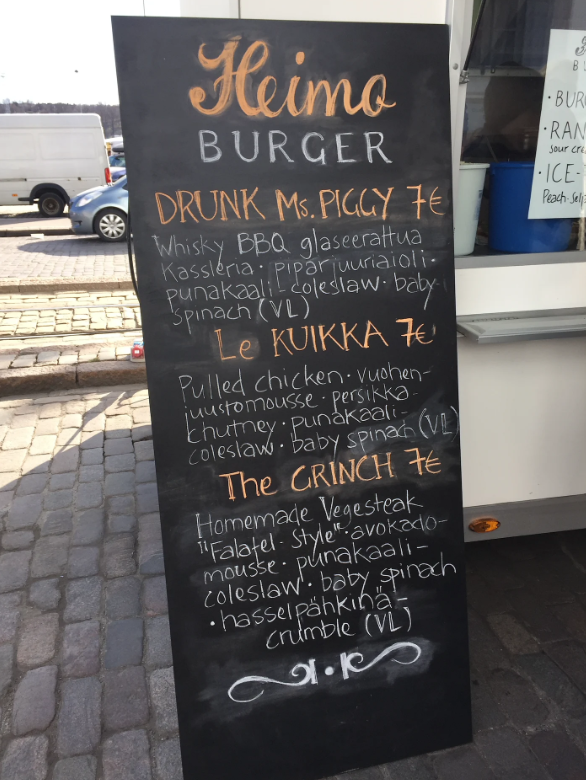 Heimo
BURGER
DRUNK Ms. PIGGY 7€
Whisky BBQ glaseerattua
Kassleria · piparjuuriaioli ·
punakaali-coleslaw · baby
spinach (VL)
Le KUIKKA 7€
Pulled chicken · vuohen-
juustomousse · persikka-
chutney · punakaali-
coleslaw · baby spinach (VL)
The GRINCH 7€
Homemade Vegesteak
"Falafel-Style" · avokado-
mousse · punakaali-
coleslaw · baby spinach
· hasselpähkinä-
crumble (VL)
· BUR
· RAN
sour cre
· ICE-
Peach-